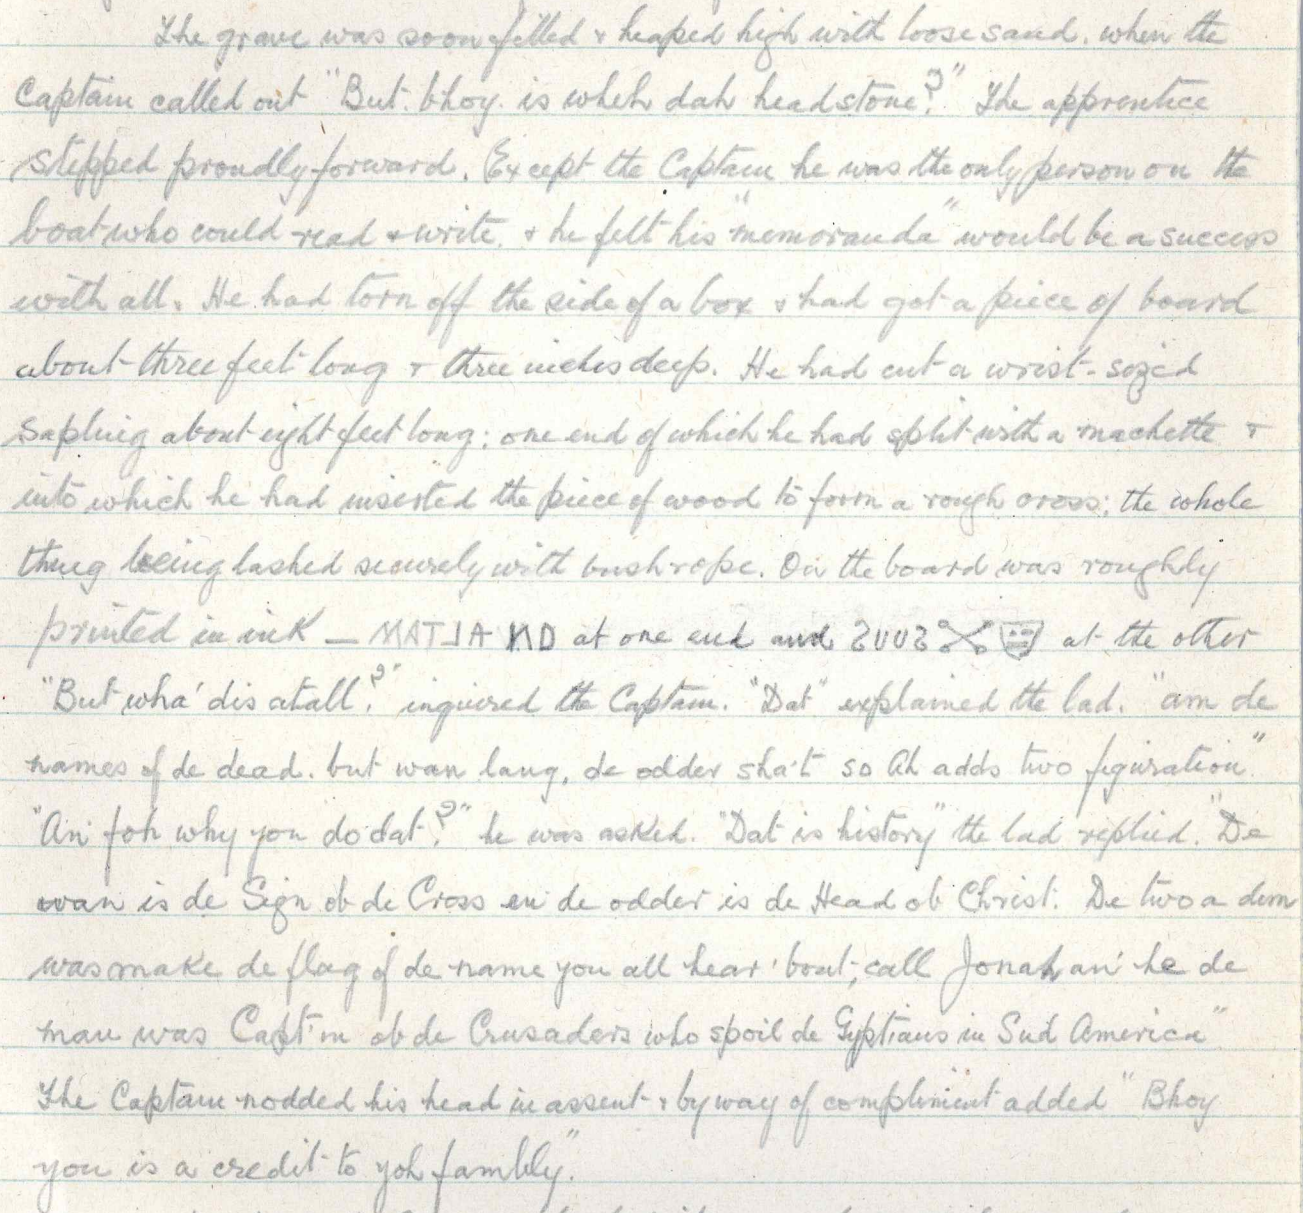 The grave was soon filled & heaped high with loose sand. when the
Captain called out "But. bhoy. is wheh dah headstone?" The apprentice
stepped proudly forward. Except the Captain he was the only person on the
boat who could read & write. & he felt his "memoranda" would be a success
with all. He had torn off the side of a box & had got a piece of board
about three feet long & three inches deep. He had cut a wrist-sized
sapling about eight feet long; one end of which he had split with a machette &
into which he had inserted the piece of wood to form a rough cross; the whole
thing being lashed securely with bushrope. On the board was roughly
printed in ink — MATJA ND at one end and at the other
"But wha' dis atall?" inquired the Captain. "Dat" explained the lad. "am de
names of de dead. but wan lang, de odder sha't so Ah adds two figuration"
"An' foh why you do dat?" he was asked. "Dat is history" the lad replied. "De
wan is de Sign ob de Cross en de odder is de Head ob Christ. De two a dem
was make de flag of de name you all hear 'bout; call Jonah an' he de
man was Capt'n ob de Crusaders who spoil de Gyptians in Sud America"
The Captain nodded his head in assent & by way of compliment added "Bhoy
you is a credit to yoh fambly."